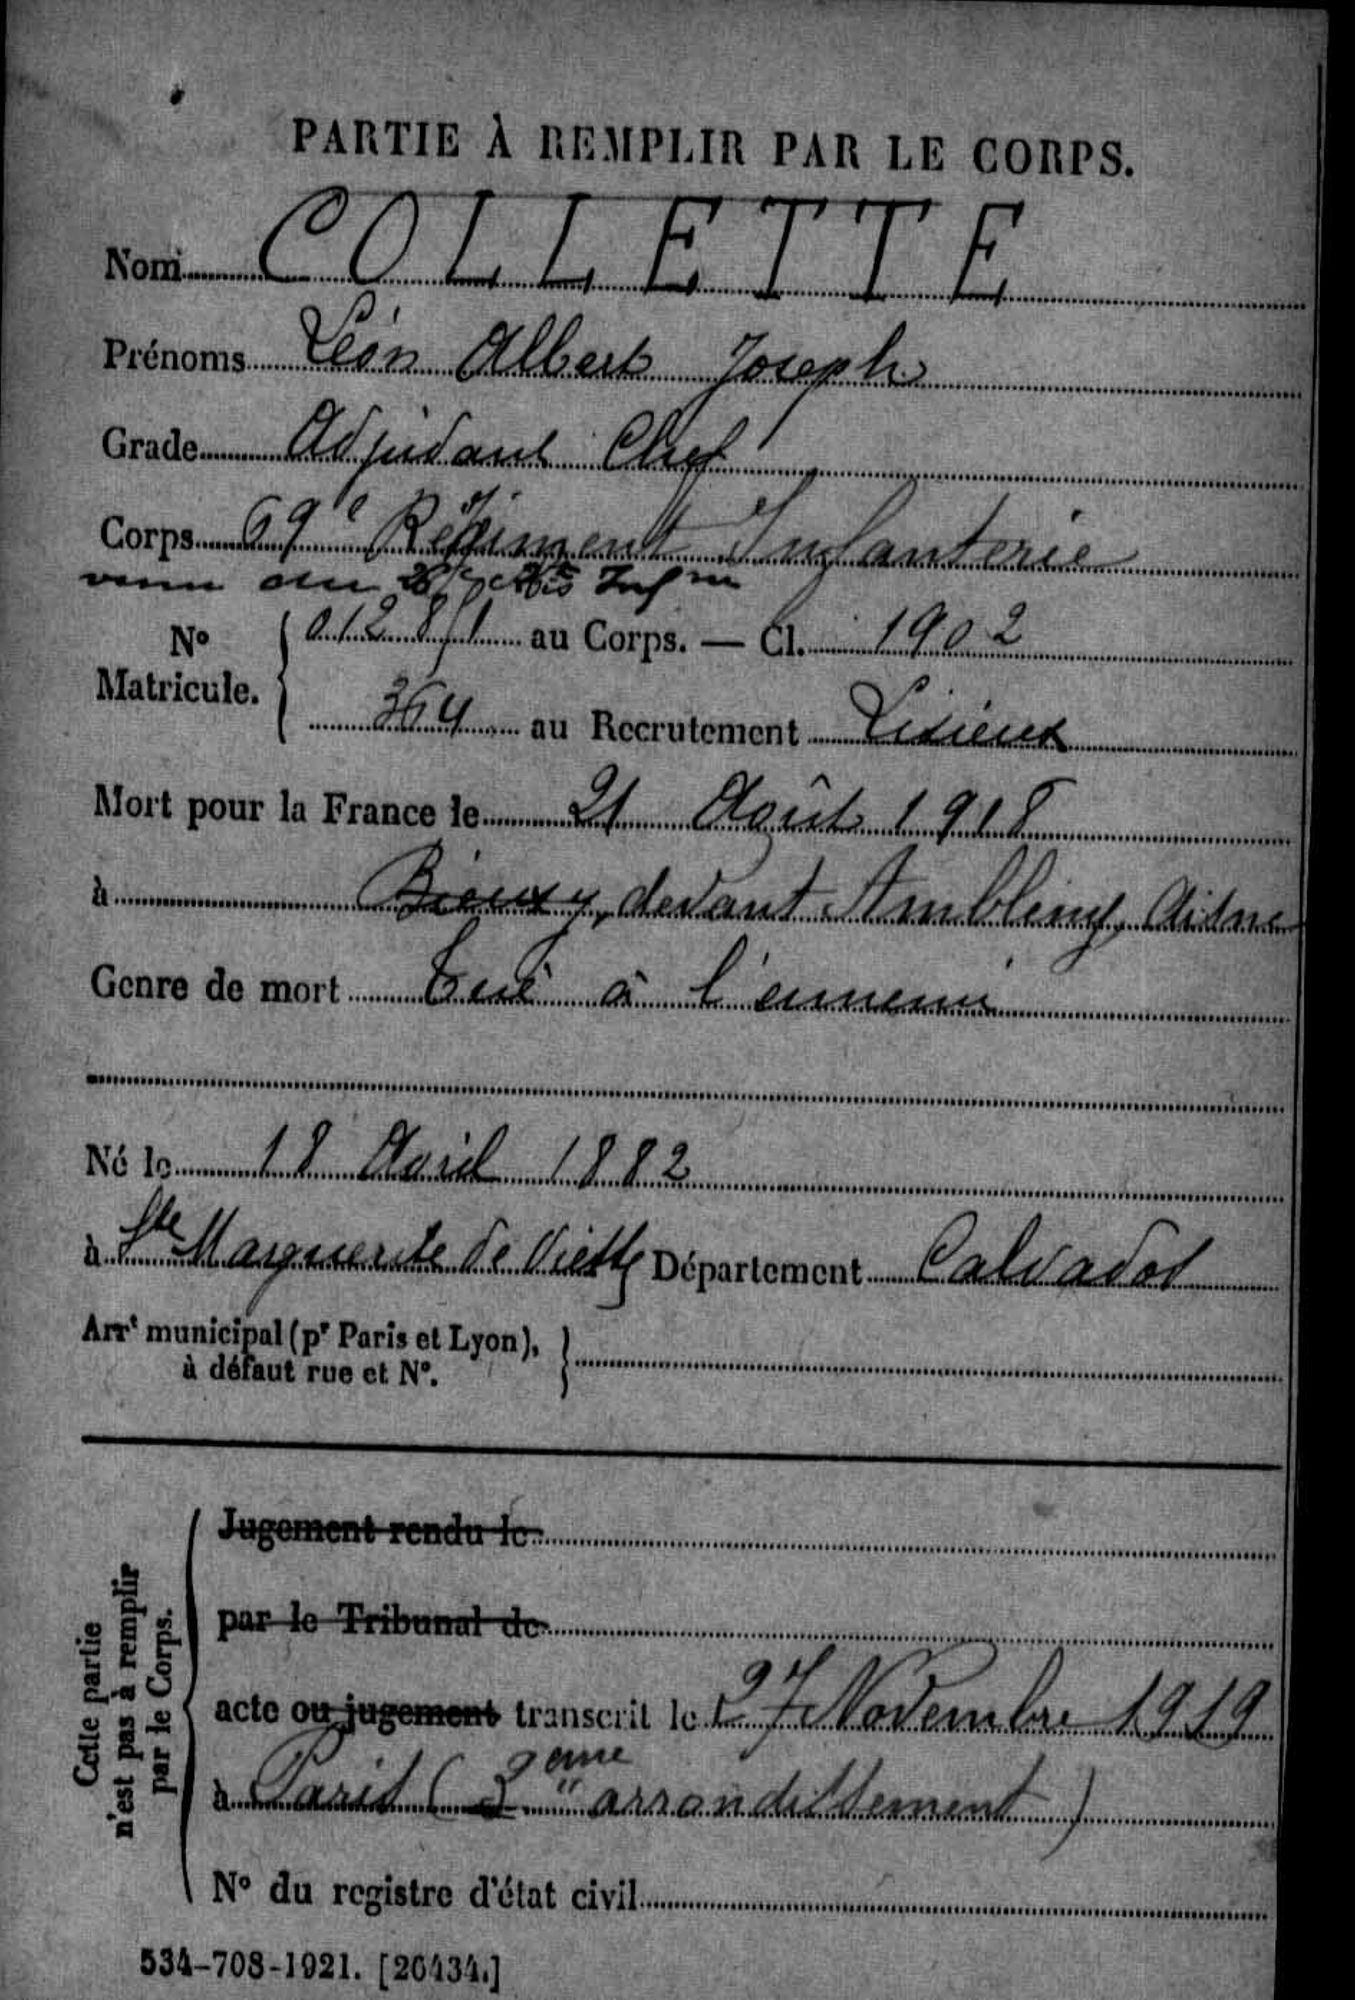 PARTIE À REMPLIR PAR LE CORPS.
Nom COLLETTE
Prénoms Léon Albert Joseph
Grade Adjudant Chef
Corps 69e Régiment Infanterie
venu du
N° Matricule. au Corps. — Cl. 1902
364 au Recrutement Lisieux
Mort pour la France le 21 Août 1918
à Bieuxy, devant Ambleny, Aisne
Genre de mort Tué à l'ennemi
Né le 18 Avril 1882
à Ste Marguerite de Viette Département Calvados
Arrt municipal (pr Paris et Lyon),
à défaut rue et N°.
Cette partie
n'est pas à remplir
par le Corps.
Jugement rendu le
par le Tribunal de
acte ou jugement transcrit le 27 Novembre 1919
à Paris ( eme arrondissement )
N° du registre d'état civil
534-708-1921. [26434.]